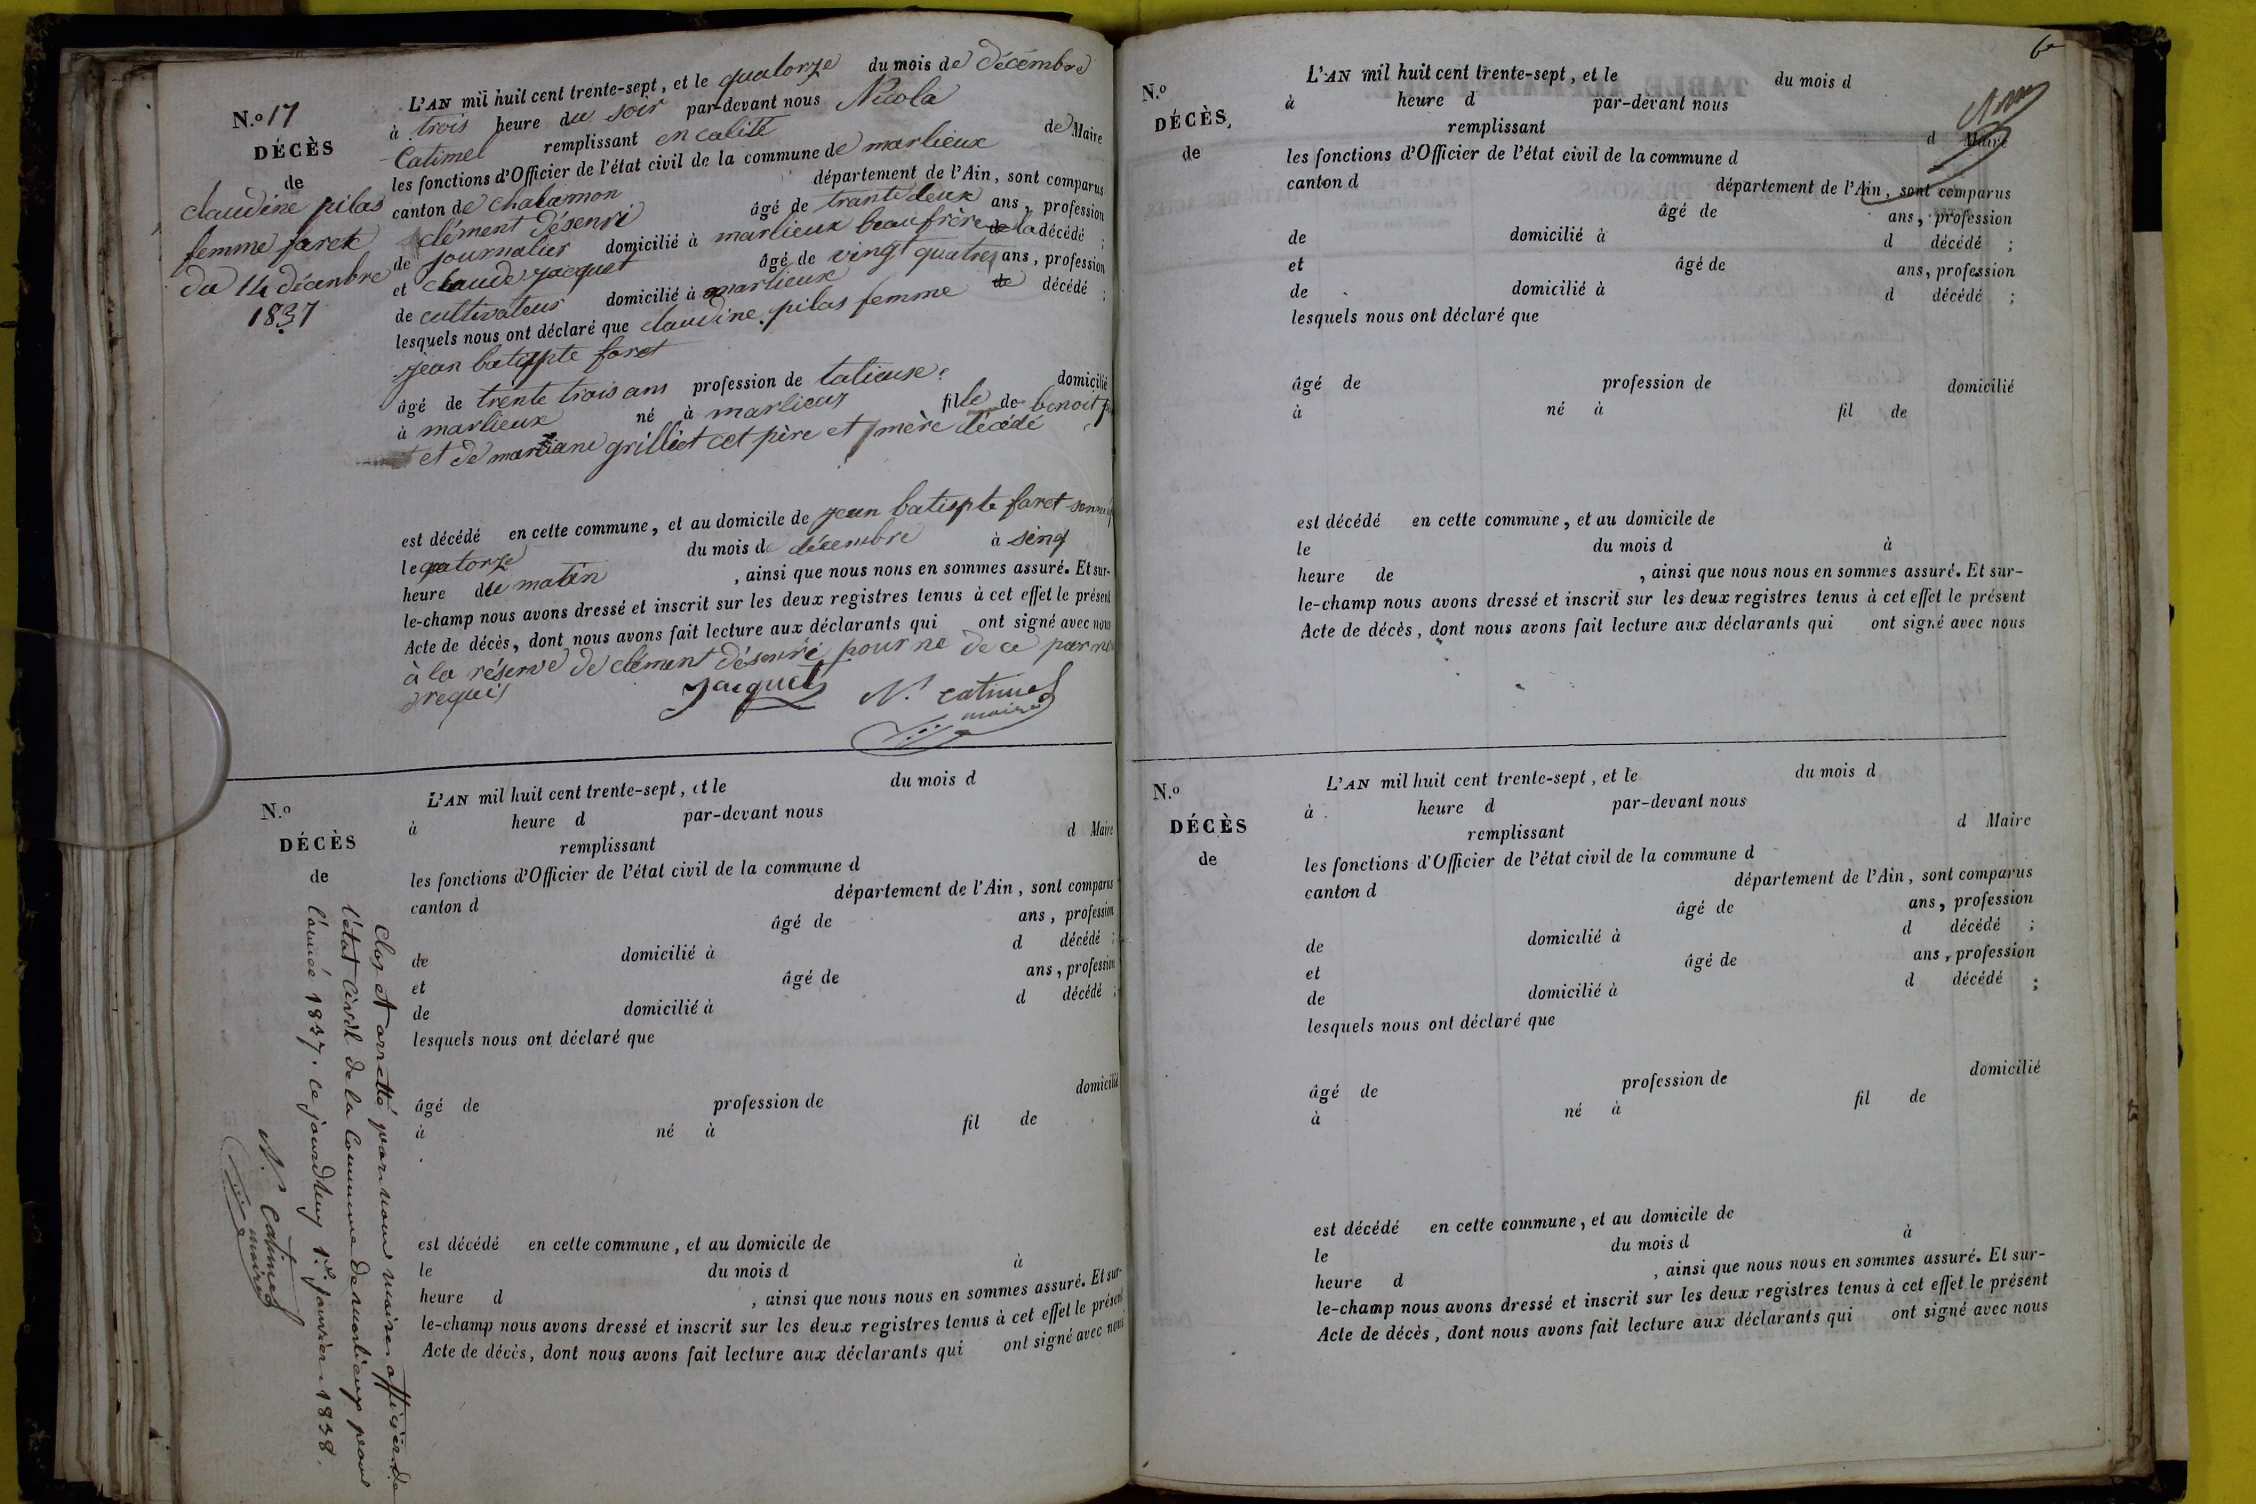 N.º 17
DÉCÈS
de
claudine pilas
femme faret
du 14 décenbre
1837
L'AN mil huit cent trente-sept, et le quatorze du mois de décembre
à trois heure du soir par-devant nous Nicola
Catimel remplissant en calité de Maire
les fonctions d'Officier de l'état civil de la commune de marlieux
canton de chalamon département de l'Ain, sont comparus
clément désenri âgé de trante deux ans, profession
de journalier domicilié à marlieux beaufrère de la décédé ;
et claude jacquet âgé de vingt quatres ans, profession
de cultivateur domicilié à marlieux de décédé ;
lesquels nous ont déclaré que claudine pilas femme
jean batispte faret
âgé de trente trois ans profession de talieuse domicilié
à marlieux né à marlieux fille de benoit
et de mariane grilliet cet père et mère décédé
est décédé en cette commune, et au domicile de jean batispte faret
le quatorze du mois de décembre à sinq
heure du matin , ainsi que nous nous en sommes assuré. Et sur-
le-champ nous avons dressé et inscrit sur les deux registres tenus à cet effet le présent
Acte de décès, dont nous avons fait lecture aux déclarants qui ont signé avec nous
à la réserve de clément désenri pour ne de ce
requis
Jacquet N.s catimel
maire
N.º
DÉCÈS
de
L'AN mil huit cent trente-sept, et le du mois d
à heure d par-devant nous
remplissant d Maire
les fonctions d'Officier de l'état civil de la commune d
canton d département de l'Ain, sont comparus
âgé de ans, profession
de domicilié à d décédé ;
et âgé de ans, profession
de domicilié à d décédé ;
lesquels nous ont déclaré que
âgé de profession de domicilié
à né à fil de
est décédé en cette commune, et au domicile de
le du mois d à
heure d , ainsi que nous nous en sommes assuré. Et sur-
le-champ nous avons dressé et inscrit sur les deux registres tenus à cet effet le présent
Acte de décès, dont nous avons fait lecture aux déclarants qui ont signé avec nous
Clos et arretté par nous maire officier de
l'état civil de la Commune de marlieux pour
l'année 1837. ce jourdhuy 1.er janvier 1838.
N.s catimel
maire
6e
N.º
DÉCÈS
de
L'AN mil huit cent trente-sept, et le du mois d
à heure d par-devant nous
remplissant d Maire
les fonctions d'Officier de l'état civil de la commune d
canton d département de l'Ain, sont comparus
âgé de ans, profession
de domicilié à d décédé ;
et âgé de ans, profession
de domicilié à d décédé ;
lesquels nous ont déclaré que
âgé de profession de domicilié
à né à fil de
est décédé en cette commune, et au domicile de
le du mois d à
heure de , ainsi que nous nous en sommes assuré. Et sur-
le-champ nous avons dressé et inscrit sur les deux registres tenus à cet effet le présent
Acte de décès, dont nous avons fait lecture aux déclarants qui ont signé avec nous
N.º
DÉCÈS
de
L'AN mil huit cent trente-sept, et le du mois d
à heure d par-devant nous
remplissant d Maire
les fonctions d'Officier de l'état civil de la commune d
canton d département de l'Ain, sont comparus
âgé de ans, profession
de domicilié à d décédé ;
et âgé de ans, profession
de domicilié à d décédé ;
lesquels nous ont déclaré que
âgé de profession de domicilié
à né à fil de
est décédé en cette commune, et au domicile de
le du mois d à
heure d , ainsi que nous nous en sommes assuré. Et sur-
le-champ nous avons dressé et inscrit sur les deux registres tenus à cet effet le présent
Acte de décès, dont nous avons fait lecture aux déclarants qui ont signé avec nous